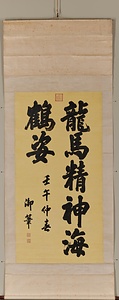 龍馬精神海
鶴姿
壬午仲春
御筆